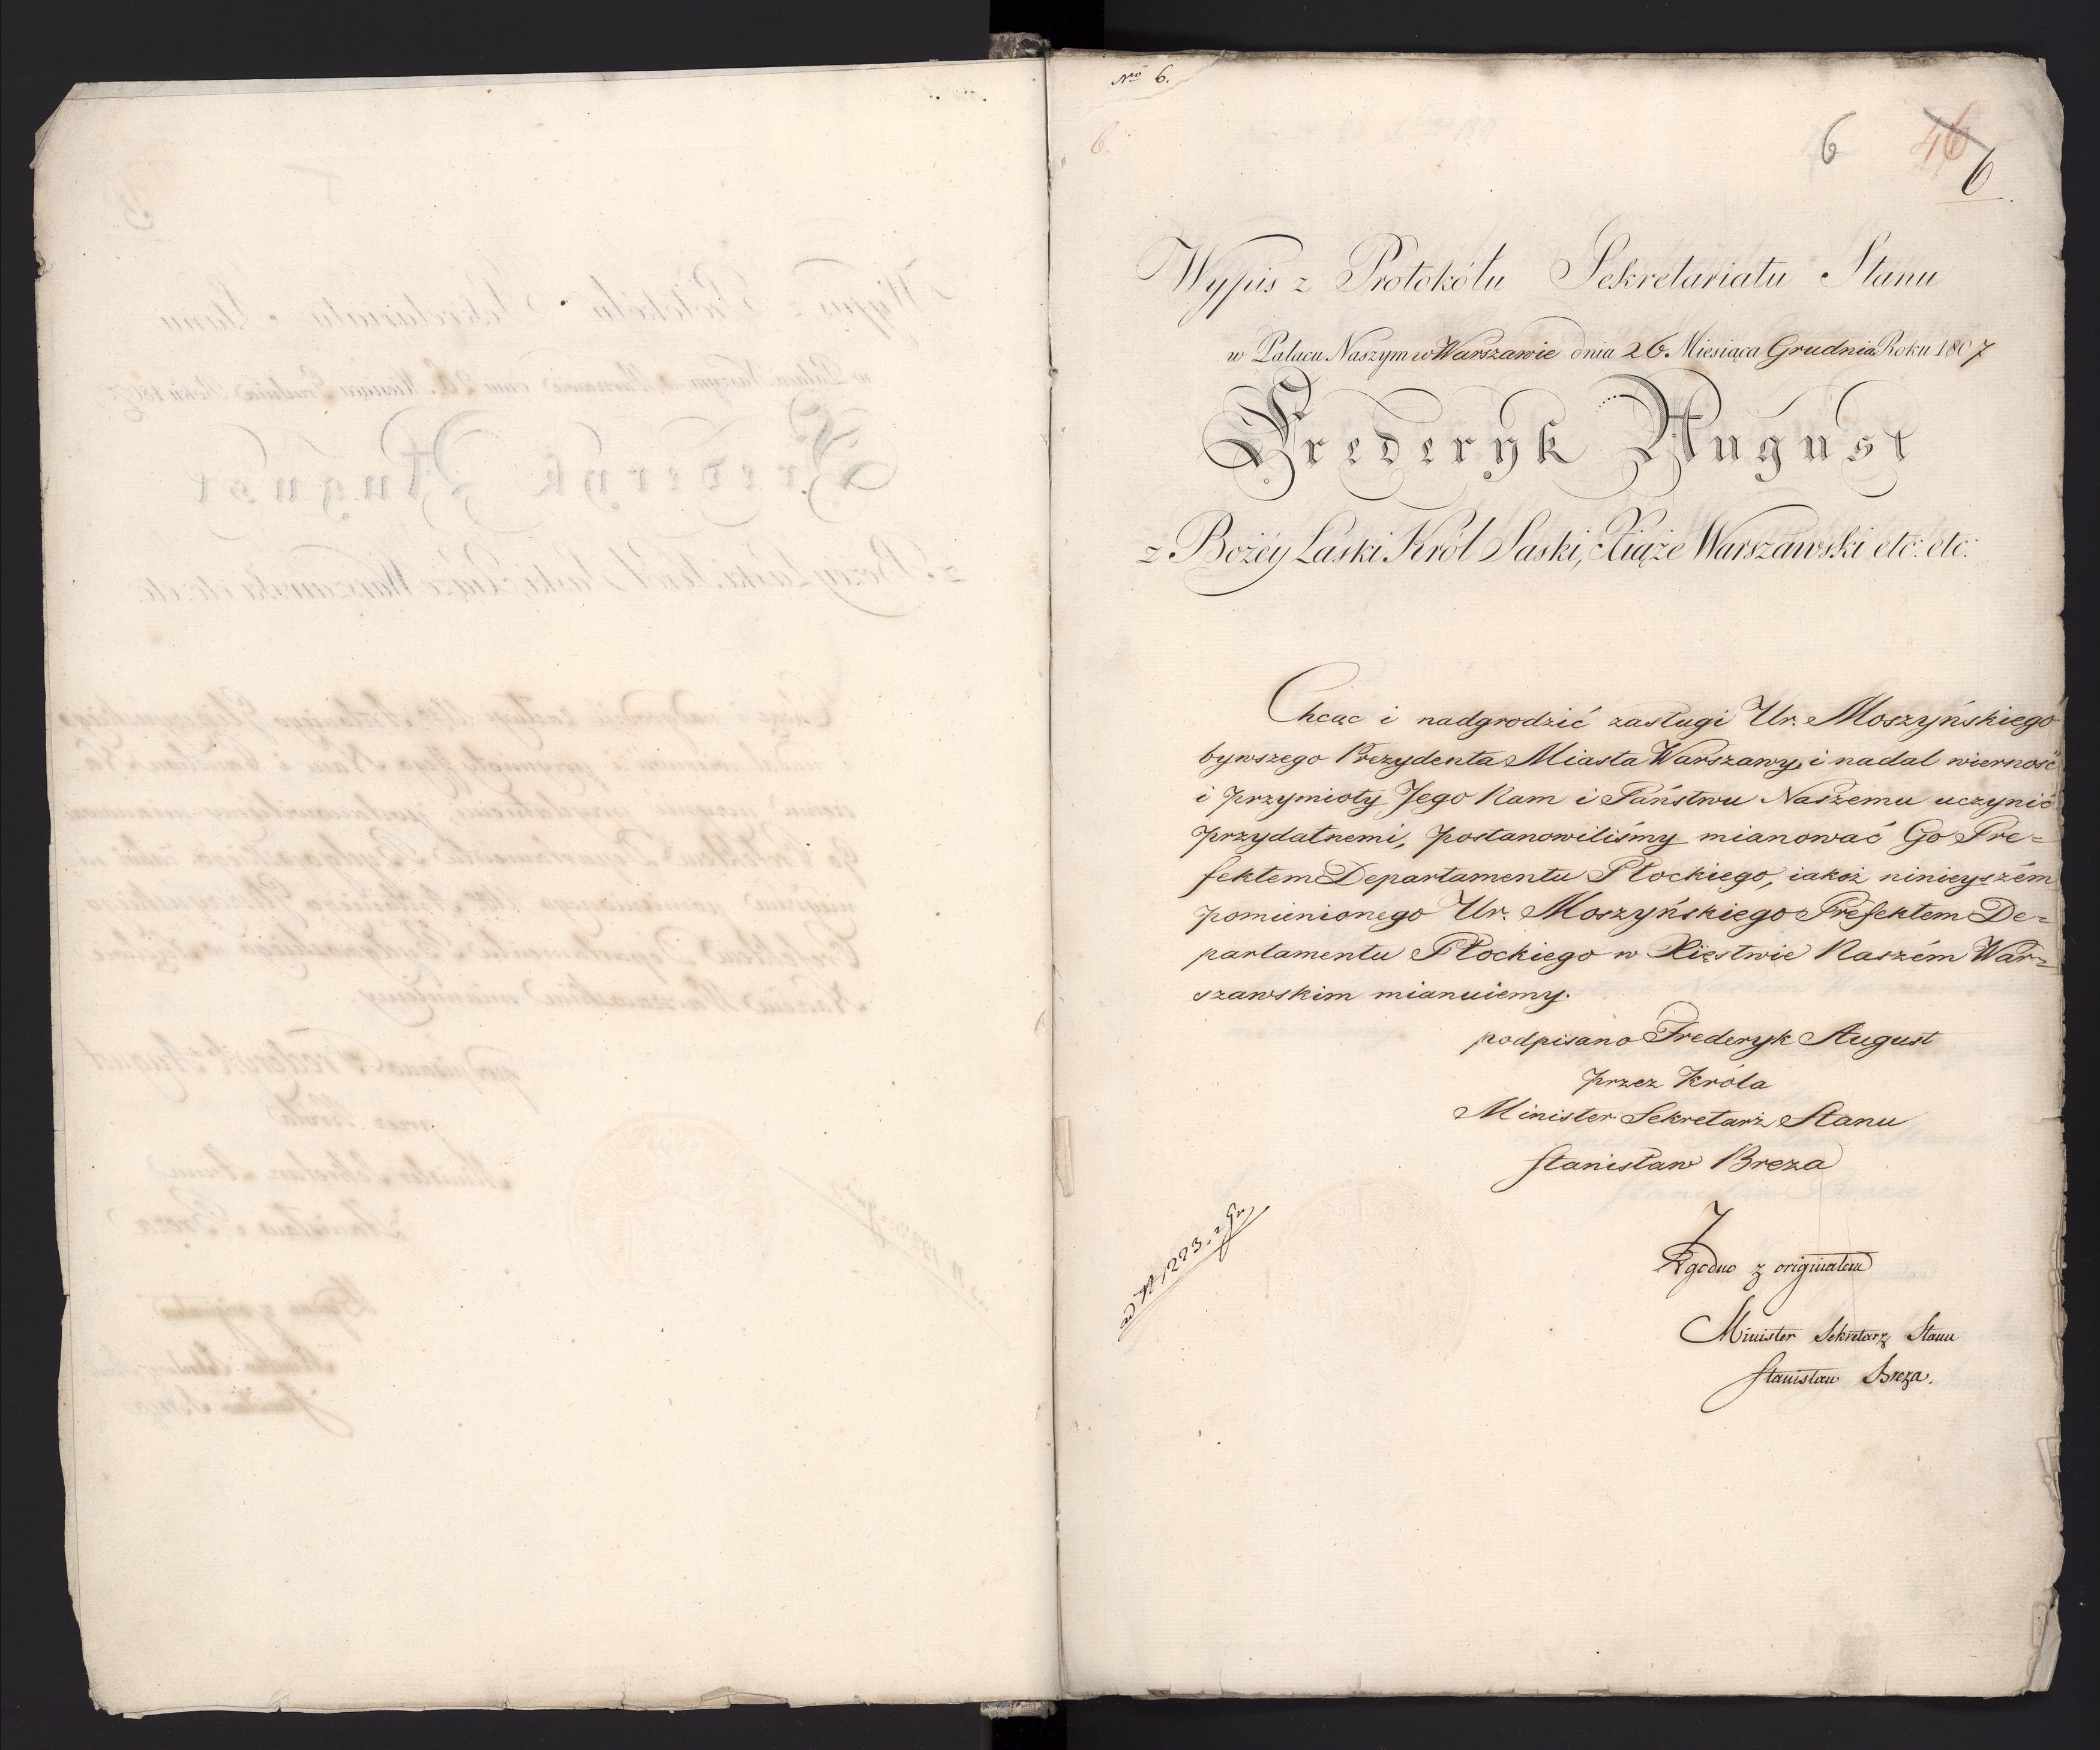 Nro 6.
6.
6 46
6
Wypis z Protokółu Sekretariatu Stanu
w Pałacu Naszym w Warszawie dnia 26. Miesiąca Grudnia Roku 1807
Frederyk August
z Bożey Łaski Król Saski, Xiąże Warszawski etc: etc:
Chcąc i nadgrodzić zasługi Ur. Moszyńskiego
bywszego Prezydenta Miasta Warszawy, i nadal wierność
i przymioty Jego Nam i Państwu Naszemu uczynić
przydatnemi, postanowiliśmy mianować Go Pre=
fektem Departamentu Płockiego, iakoż ninieyszém
pomienionego Ur. Moszyńskiego Prefektem De=
partamentu Płockiego w Xięstwie Naszém War=
szawskim mianuiemy.
podpisano Frederyk August
przez Króla
Minister Sekretarz Stanu
Stanisław Breza
Zgodno z originałem
Minister Sekretarz Stanu
Stanisław Breza.
ad N 1223.